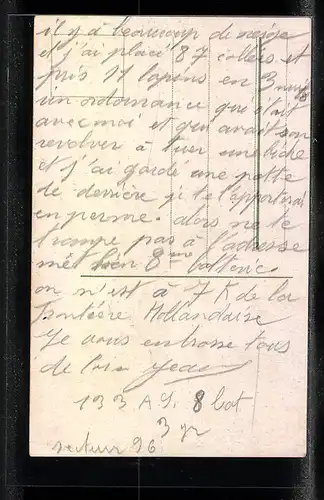 il y a beaucoup de neige
et j'ai placé 87 collets et
pris 11 lapins en 3 nuits
un ordonnance qui était
avec moi et qui avait son
revolver a tuer une biche
et j'ai gardé une patte
de derrière je te l'apporterai
en perme. alors ne te
trompe pas à l'adresse
met bien 8me batterie
on n'est à 7 K de la
frontière Hollandaise
Je vous embrasse tous
de loin Jean
133 A.L. 8 bat
3 gr
secteur 96